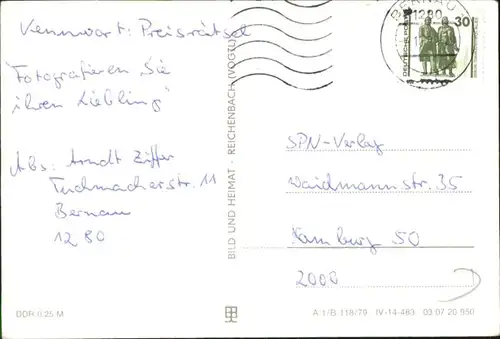 Kennwort: Preisrätsel
"Fotografieren Sie
ihren Liebling"
Abs: Arndt Ziffer
Tuchmacherstr. 11
Bernau
1280
DDR 0,25 M
BILD UND HEIMAT · REICHENBACH (VOGTL)
BERNAU
1280
30
DEUTSCHE POST
SPN-Verlag
Waidmannstr. 35
Hamburg 50
2000
A 1/B 118/79 IV-14-483 03 07 20 950